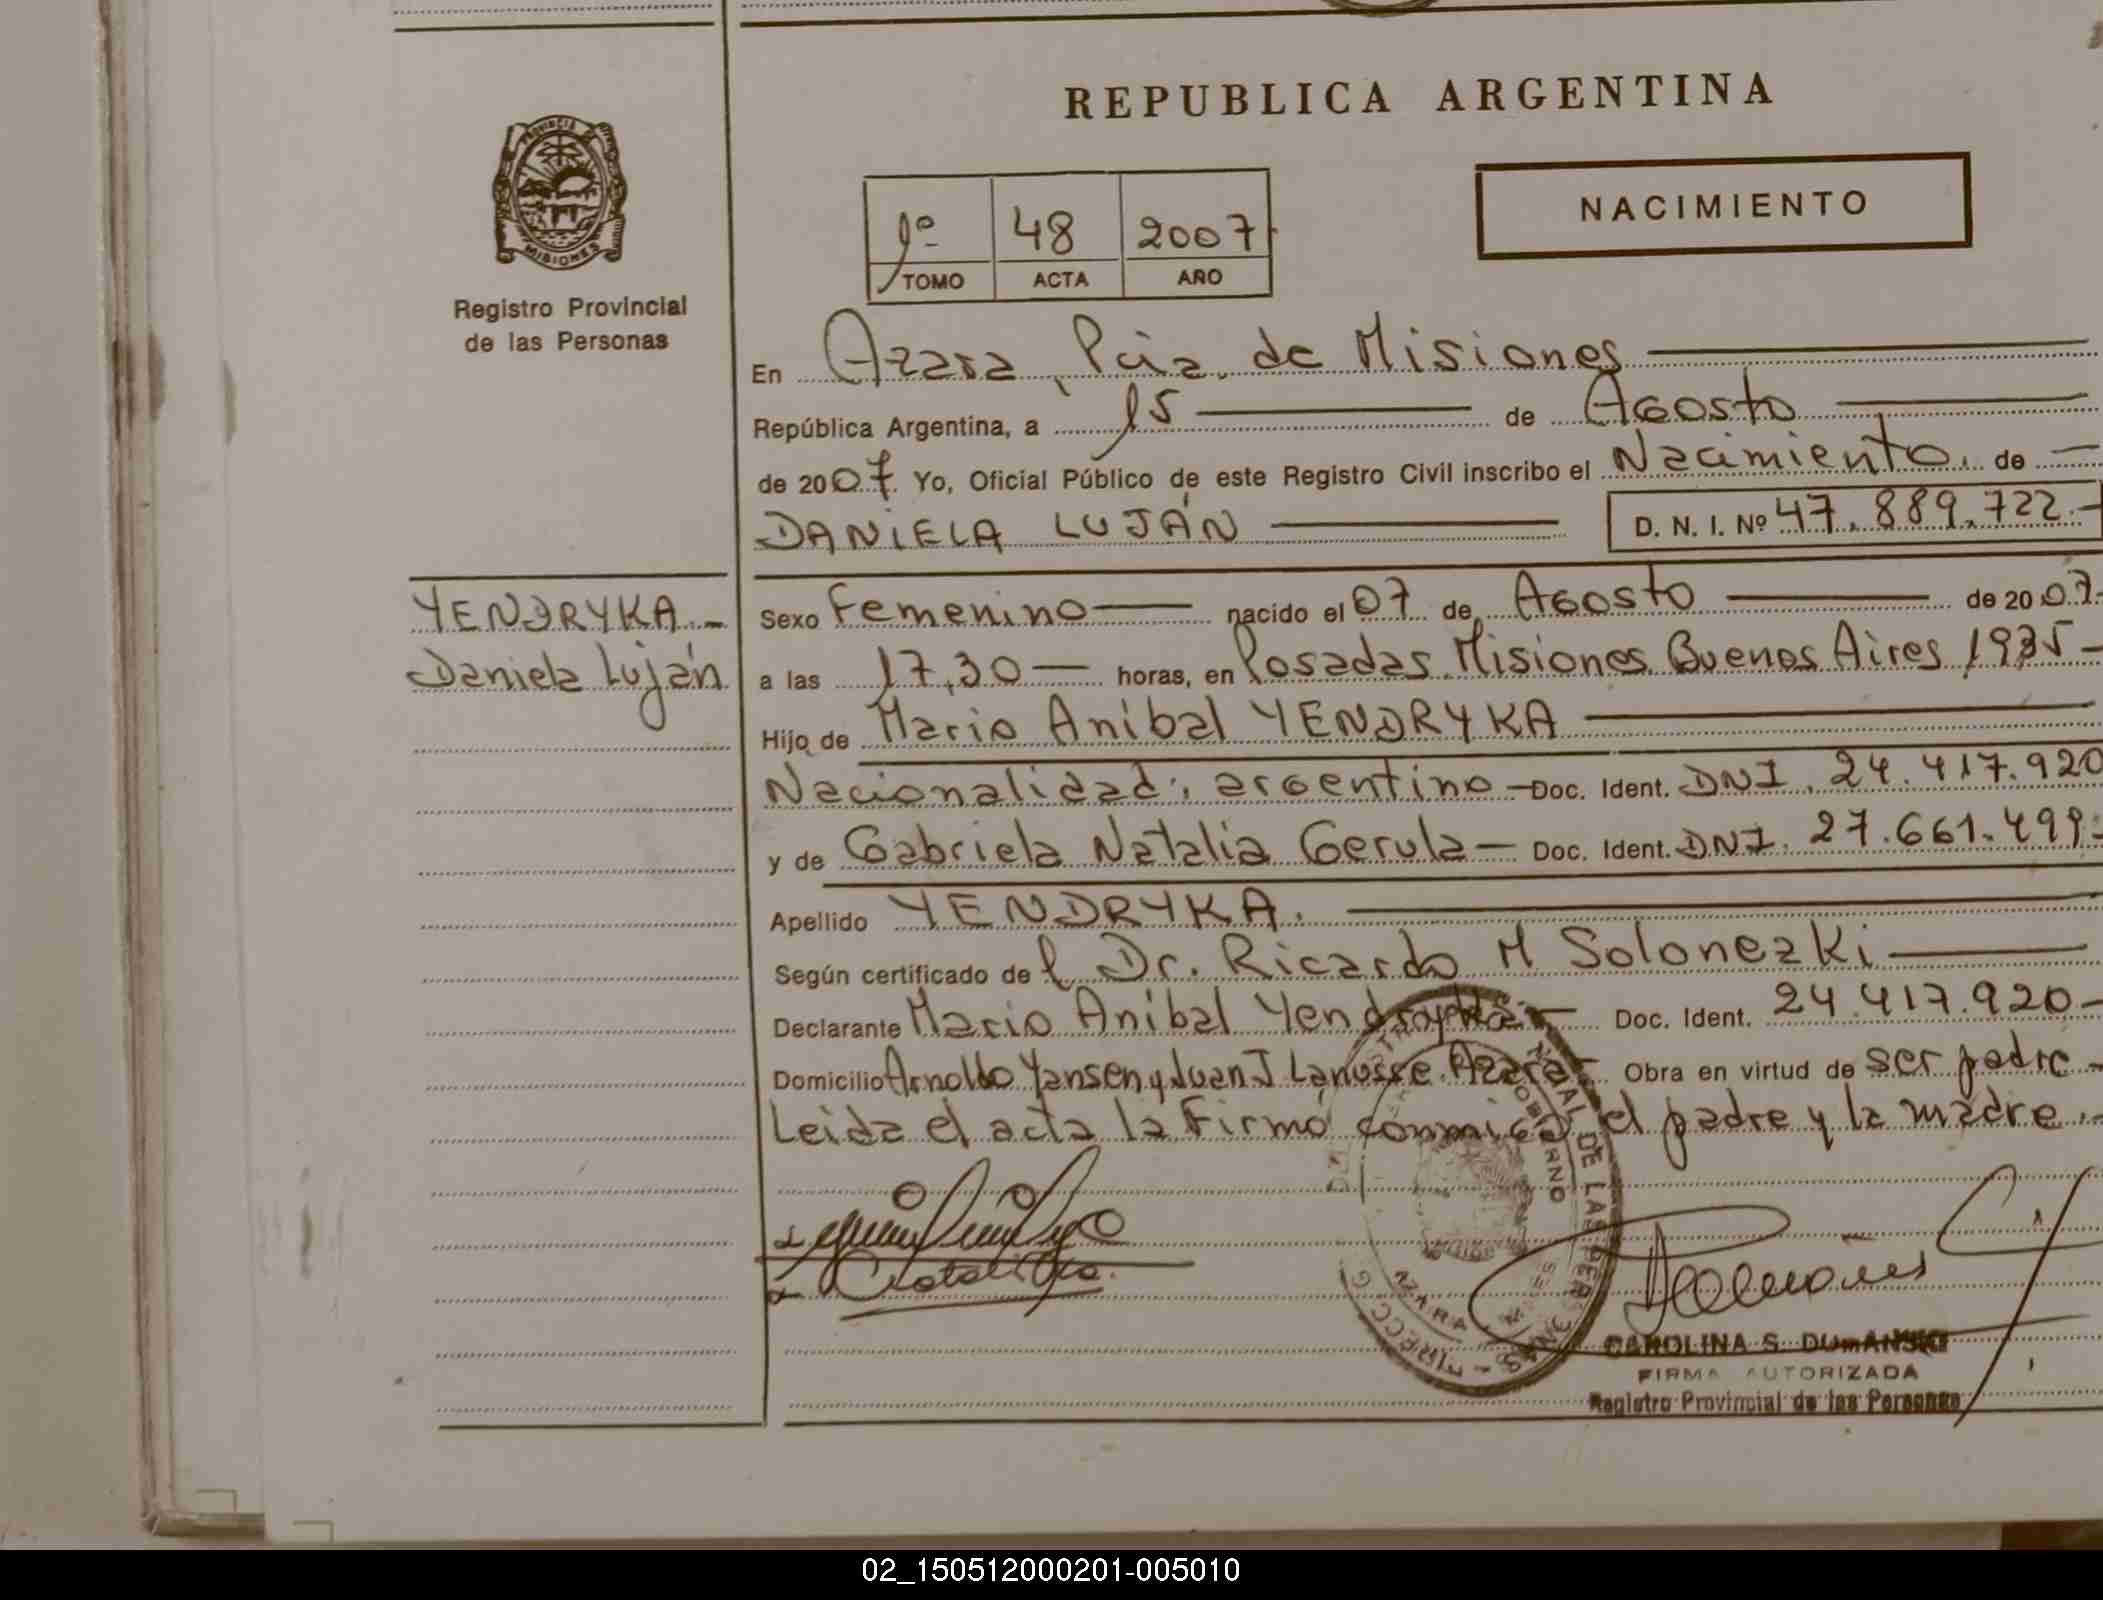 REPUBLICA ARGENTINA
PROVINCIA DE MISIONES
Registro Provincial
de las Personas
1º 48 2007
TOMO ACTA AÑO
NACIMIENTO
En Azara, Pcia. de Misiones
República Argentina, a 15 de Agosto
de 2007. Yo, Oficial Público de este Registro Civil inscribo el Nacimiento. de
DANIELA LUJÁN D. N. I. Nº 47.889.722.-
YENDRYKA.-
Daniela Luján
Sexo Femenino nacido el 07 de Agosto de 2007.
a las 17,30 horas, en Posadas. Misiones. Buenos Aires 1935
Hijo de Mario Anibal YENDRYKA
Nacionalidad: argentino Doc. Ident. DNI. 24.417.920
y de Gabriela Natalia Gerula Doc. Ident. DNI. 27.661.499.-
Apellido YENDRYKA.
Según certificado de l Dr. Ricardo M Solonezki
Declarante Mario Anibal Yendryka Doc. Ident. 24.417.920
Domicilio Arnoldo Yansen y Juan J Lanusse. Azara Obra en virtud de ser padre
Leida el acta la Firmó conmigo el padre y la madre.
AZARA
CAROLINA S. DUMANSKI
FIRMA AUTORIZADA
Registro Provincial de las Personas
02_150512000201-005010